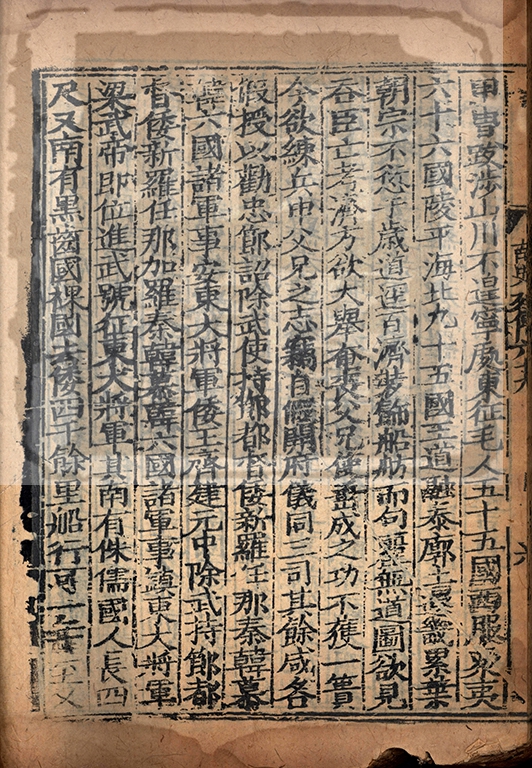 甲冑跋涉山川不遑寧處東征毛人五十五國西服衆夷
六十六國陵平海北九十五國王道融泰廓土遐畿累葉
朝宗不愆于歲道逕百濟裝飾船舫而句麗無道圖欲見
吞臣亡考濟方欲大舉奄喪父兄使垂成之功不獲一簣
今欲練兵申父兄之志竊自假開府儀同三司其餘咸各
假授以勸忠節詔除武使持節都督倭新羅任那秦韓慕
韓六國諸軍事安東大將軍倭王齊建元中除武持節都
督倭新羅任那加羅秦韓慕韓六國諸軍事鎮東大將軍
梁武帝即位進武號征東大將軍其南有侏儒國人長四
尺又南有黑齒國裸國去倭四千餘里船行可一年至又